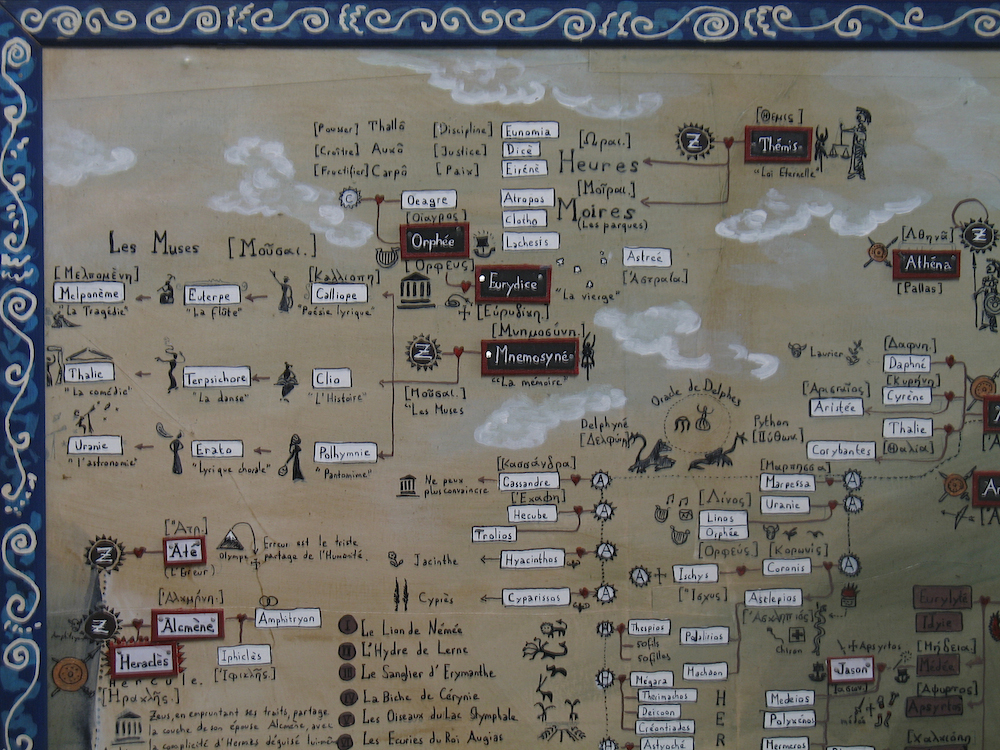 [Pousser] Thallô [Discipline] Eunomia
[Croître] Auxô [Justice] Dicè
[Fructifier] Carpô [Paix] Eirènè
[Ὧραι.]
Heures
[Θέμις]
Z Thémis
"Loi Eternelle"
C Oeagre
[Οἴαγρος]
Orphée
Ὀρφεύς
Atropos
Clotho
Lachesis
[Μοῖραι.]
Moires
(Les parques)
Astreé
[Ἀστραία.]
"La vierge"
[Ἀθηνᾶ]
Z
Athéna
[Pallas]
Les Muses [Μοῦσαι.]
[Μελπομένη]
Melponème
"La Tragédie"
Euterpe
"La flûte"
[Καλλιόπη]
Calliope
"Poésie lyrique"
Eurydice
[Εὐρυδίκη.]
[Μνημοσύνη.]
Z Mnemosyné
"La mémoire"
[Μοῦσαι.]
"Les Muses
Thalie
"La comédie"
Terpsichore
"La danse"
Clio
"L'Histoire"
Uranie
"l'astronomie"
Erato
"Lyrique chorale"
Polhymnie
"Pantomime"
Oracle de Delphes
Delphyné
[Δελφύνη]
Python
[Πύθων.]
Laurier
[Δαφνη.]
Daphné
[Κυρήνη]
Cyrène
[Αρισταῖος]
Aristée
Thalie
[Θαλία]
Corybantes
[Κασσάνδρα]
Cassandre A
Ne peux
plus convaincre
[Ἑκάβη]
Hecube A
Troïlos
Jacinthe
Hyacinthos A
Cypriès
Cyparissos A
[Μαρπησσα]
Marpessa A
Uranie A
[Λίνος]
Linos
Orphée
[Ὀρφεύς]
[Κορωνίς]
Coronis A
A Ischys
[Ἰσχυς]
Asclepios
[Ἀσκληπιός]
Chiron
[Ἄτη.]
Z Até
(L'Erreur)
Olympe
Erreur est le triste
partage de l'Humanité.
[Ἀλκμήνη.]
Z Alcmène
Amphitryon
Heracles
Iphiclès
[Ἰφικλῆς.]
[Ηρακλῆς.]
Zeus, en empruntant ses traits, partage
la couche de son épouse Alcmène, avec
la complicité d'Hermès déguisé lui-même
I Le Lion de Némée
II L'Hydre de Lerne
III Le Sanglier d'Erymanthe
IV La Biche de Cérynie
V Les Oiseaux du Lac Stymphale
VI Les Ecuries du Roi Augias
H Thespios
50 fils
50 filles
Podalirios
Machaon
H Mégara
Thérimachos
Deïcoon
Créontiadès
H Astyoché
H
E
R
Apsyrtos
Jason
Medeios
Polyxénos
Hermeros
Eurylyte
Idyie
[Μήδεια]
Médée
[Αψυρτος]
Apsyrtos
[Χαλκιόπη